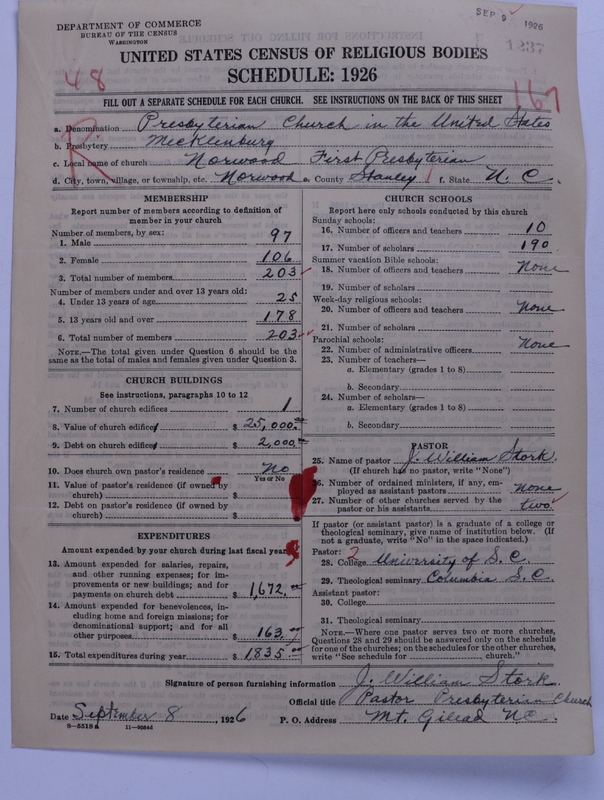 DEPARTMENT OF COMMERCE
BUREAU OF THE CENSUS
WASHINGTON
SEP 9 1926
1237
UNITED STATES CENSUS OF RELIGIOUS BODIES
SCHEDULE: 1926
48
167
FILL OUT A SEPARATE SCHEDULE FOR EACH CHURCH. SEE INSTRUCTIONS ON THE BACK OF THIS SHEET
R
a. Denomination Presbyterian Church in the United States
b. Presbytery Mecklenburg
c. Local name of church Norwood First Presbyterian
d. City, town, village, or township, etc. Norwood e. County Stanley f. State N. C.
MEMBERSHIP
Report number of members according to definition of
member in your church
Number of members, by sex:
1. Male 97
2. Female 106
3. Total number of members 203
Number of members under and over 13 years old:
4. Under 13 years of age 25
5. 13 years old and over 178
6. Total number of members 203
NOTE.—The total given under Question 6 should be the
same as the total of males and females given under Question 3.
CHURCH BUILDINGS
See instructions, paragraphs 10 to 12
7. Number of church edifices 1
8. Value of church edifice $ 25,000.00
9. Debt on church edifice $ 2,000.00
10. Does church own pastor's residence No
Yes or No
11. Value of pastor's residence (if owned by
church) $
12. Debt on pastor's residence (if owned by
church) $
EXPENDITURES
Amount expended by your church during last fiscal year
13. Amount expended for salaries, repairs,
and other running expenses; for im-
provements or new buildings; and for
payments on church debt $ 1,672.00
14. Amount expended for benevolences, in-
cluding home and foreign missions; for
denominational support; and for all
other purposes $ 163.00
15. Total expenditures during year $ 1835.00
CHURCH SCHOOLS
Report here only schools conducted by this church
Sunday schools:
16. Number of officers and teachers 10
17. Number of scholars 190
Summer vacation Bible schools:
18. Number of officers and teachers None
19. Number of scholars
Week-day religious schools:
20. Number of officers and teachers None
21. Number of scholars
Parochial schools:
22. Number of administrative officers None
23. Number of teachers—
a. Elementary (grades 1 to 8)
b. Secondary
24. Number of scholars—
a. Elementary (grades 1 to 8)
b. Secondary
PASTOR
25. Name of pastor J. William Stork
(If church has no pastor, write "None")
26. Number of ordained ministers, if any, em-
ployed as assistant pastors none
27. Number of other churches served by the
pastor or his assistants two
If pastor (or assistant pastor) is a graduate of a college or
theological seminary, give name of institution below. (If
not a graduate, write "No" in the space indicated.)
Pastor: 2
28. College University of S. C.
29. Theological seminary Columbia S. C.
Assistant pastor:
30. College
31. Theological seminary
NOTE.—Where one pastor serves two or more churches,
Questions 28 and 29 should be answered only on the schedule
for one of the churches; on the schedules for the other churches,
write "See schedule for church."
Signature of person furnishing information J. William Stork
Official title Pastor Presbyterian Church
Date September 8, 1926 P. O. Address Mt. Gilead N.C.
8-5518a